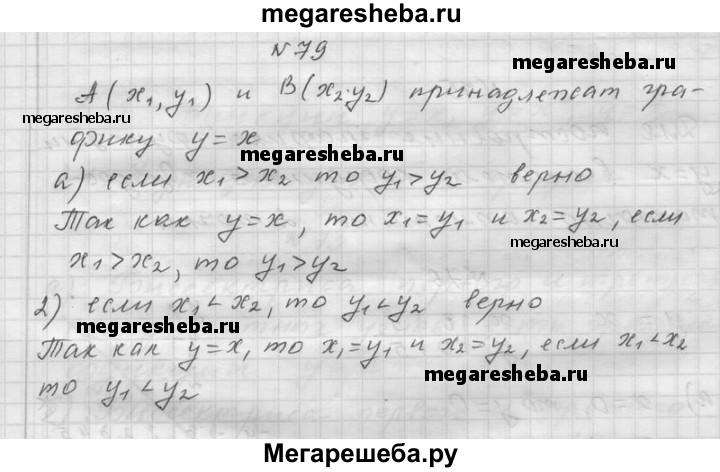 megaresheba.ru
N 79
megaresheba.ru
A(x₁,y₁) и B(x₂;y₂) принадлежат гра-
megaresheba.ru
фику y=x
megaresheba.ru
а) если x₁>x₂ то y₁>y₂ верно
Так как y=x, то x₁=y₁ и x₂=y₂, если
megaresheba.ru
x₁>x₂, то y₁>y₂
2) если x₁<x₂, то y₁<y₂ верно
megaresheba.ru
Так как y=x, то x₁=y₁ и x₂=y₂, если x₁<x₂
megaresheba.ru
то y₁<y₂
Мегарешеба.ру